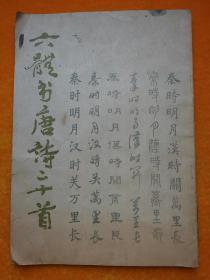 秦時明月漢時關萬里長
秦時明月漢時關萬里長
秦時明月漢時關萬里長
秦時明月漢時關萬里長
秦時明月漢時關萬里長
秦时明月汉时关万里长
六體书唐詩二十首